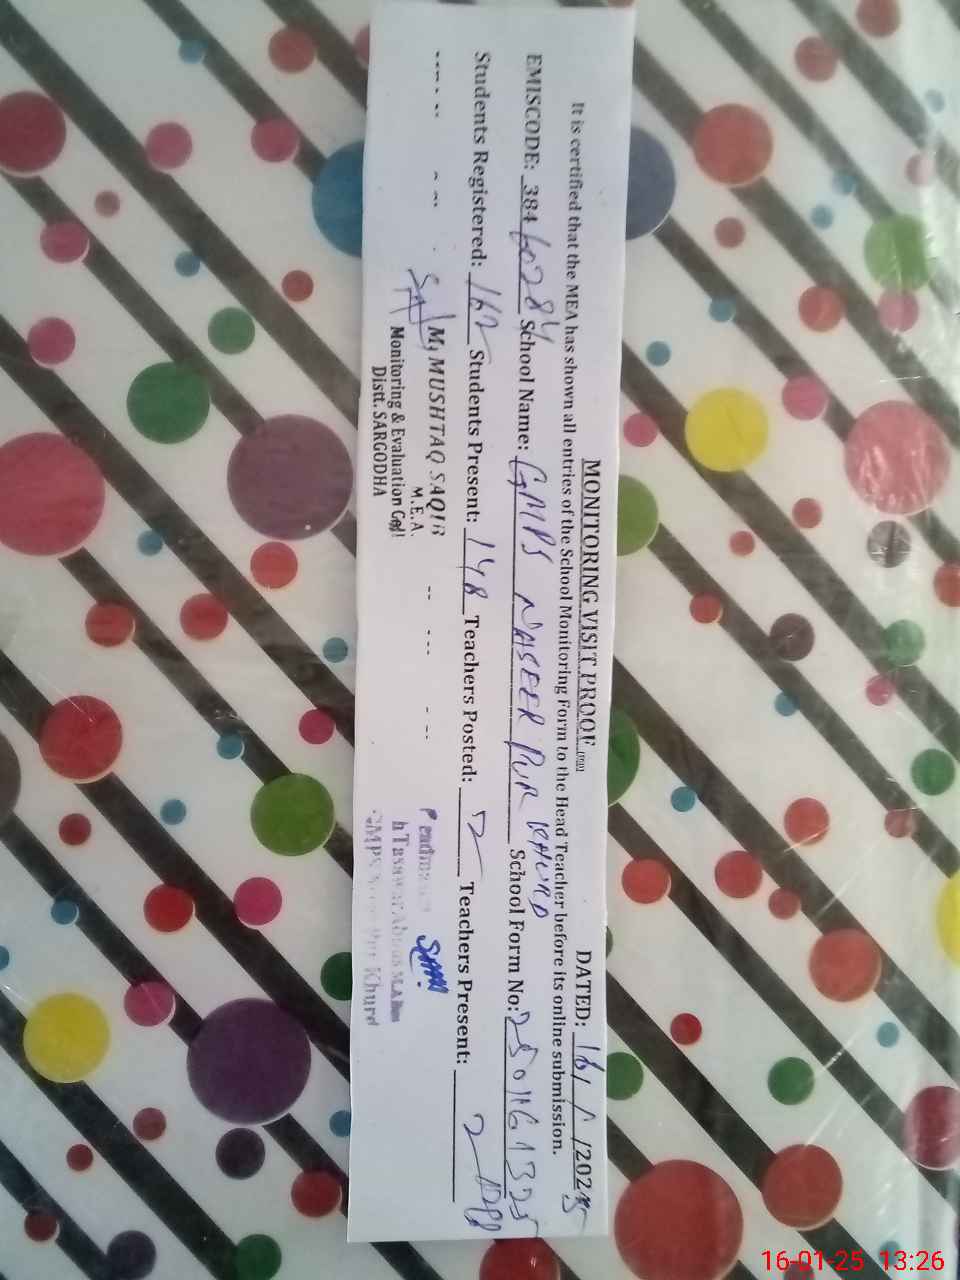 MONITORING VISIT PROOF
DATED: 16/1/2025
It is certified that the MEA has shown all entries of the School Monitoring Form to the Head Teacher before its online submission.
EMISCODE: 38460284 School Name: GMPS NASEER PUR KHURD School Form No: 2501161325
Students Registered: 162 Students Present: 148 Teachers Posted: 2 Teachers Present: 2
MUSHTAQ SAQIB
M.E.A.
Monitoring & Evaluation Cell
Distt. SARGODHA
Khurd
16-01-25 13:26